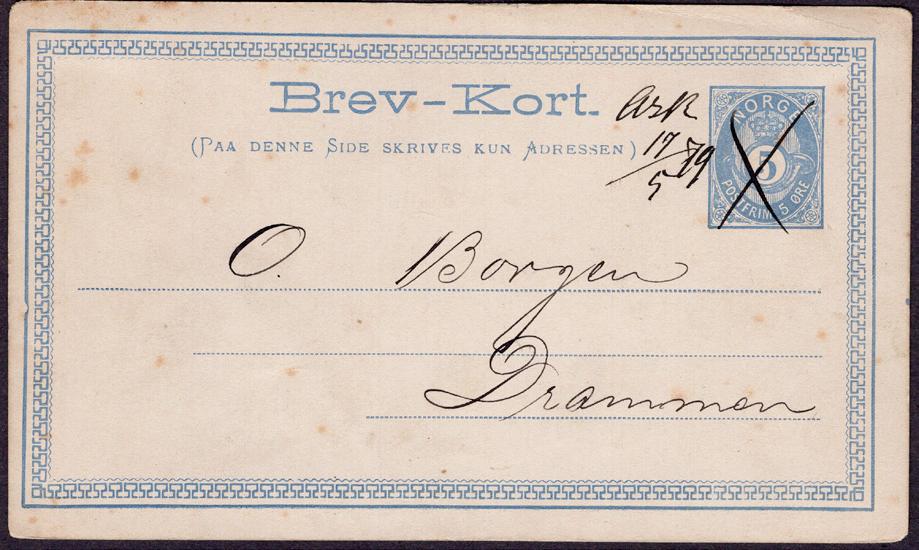 Brev-Kort.
(PAA DENNE SIDE SKRIVES KUN ADRESSEN)
Ask
17/5 79
NORGE
5
POSTFRIM. 5 ØRE
O. Borgen
Drammen